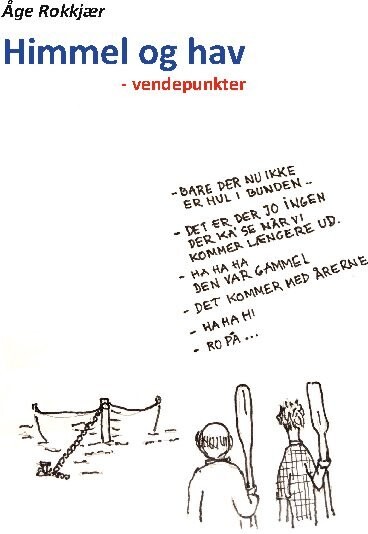 Åge Rokkjær
Himmel og hav
- vendepunkter
- BARE DER NU IKKE
ER HUL I BUNDEN -
- DET ER DER JO INGEN
DER KA' SE NÅR VI
KOMMER LÆNGERE UD.
- HA HA HA
DEN VAR GAMMEL
- DET KOMMER MED ÅRERNE
- HA HA HI
- RO PÅ...